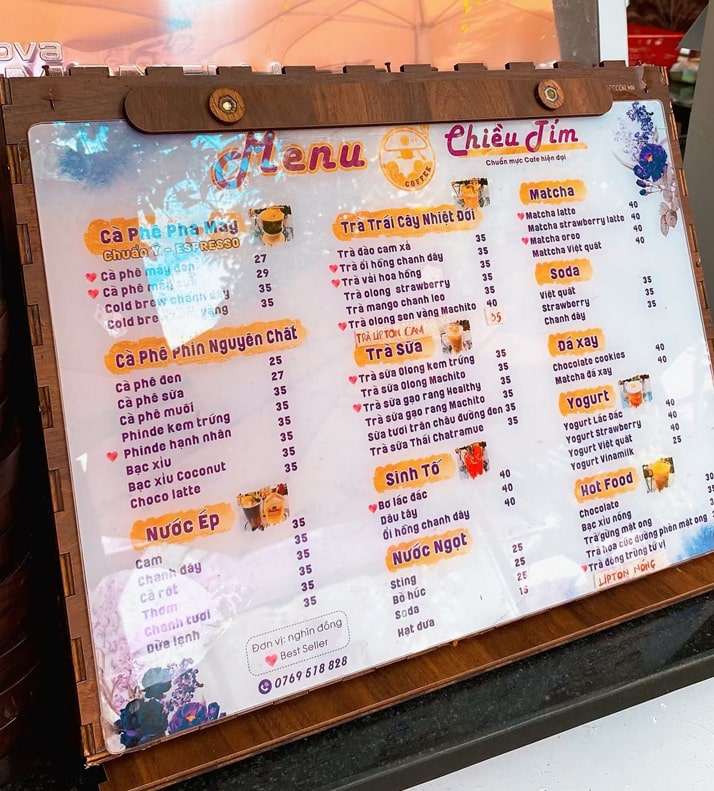 Menu
COFFEE
Chiều Tím
Chuẩn mực Cafe hiện đại
Cà Phê Pha Máy
Chuẩn Ý - ESPRESSO
Cà phê máy đen 27
Cà phê máy 29
Cold brew chanh dây 35
Cold brew vàng 35
Cà Phê Phin Nguyên Chất
Cà phê đen 25
Cà phê sữa 27
Cà phê muối 35
Phinde kem trứng 35
Phinde hạnh nhân 35
Bạc xỉu 35
Bạc xỉu Coconut 35
Choco latte 35
Nước Ép
Cam 35
Chanh dây 35
Cà rốt 35
Thơm 35
Chanh tươi 35
Dừa lạnh 35
Đơn vị: nghìn đồng
Best Seller
0769 518 828
Trà Trái Cây Nhiệt Đới
Trà đào cam xả 35
Trà ổi hồng chanh dây 35
Trà vải hoa hồng 35
Trà olong strawberry 35
Trà mango chanh leo 35
Trà olong sen vàng Machito 40
TRÀ LIPTON CAM 35
Trà Sữa
Trà sữa olong kem trứng 35
Trà sữa olong Machito 35
Trà sữa gạo rang Healthy 35
Trà sữa gạo rang Machito 35
Sữa tươi trân châu đường đen 35
Trà sữa Thái Chatramue 35
Sinh Tố
Bơ lắc đắc 40
Dâu tây 40
Ổi hồng chanh dây 40
Nước Ngọt
Sting 25
Bò húc 25
Soda 25
Hạt dưa 15
Matcha
Matcha latte 40
Matcha strawberry latte 40
Matcha oreo 40
Mattcha Việt quất 40
Soda
Việt quất 35
Strawberry 35
Chanh dây 35
Đá xay
Chocolate cookies 40
Matcha đá xay 40
Yogurt
Yogurt Lắc Đắc 40
Yogurt Strawberry 40
Yogurt Việt quất 40
Yogurt Vinamilk 25
Hot Food
Chocolate
Bạc xỉu nóng
Trà gừng mật ong
Trà hoa cúc đường phèn mật ong
Trà đông trùng tứ vị
LIPTON NÓNG